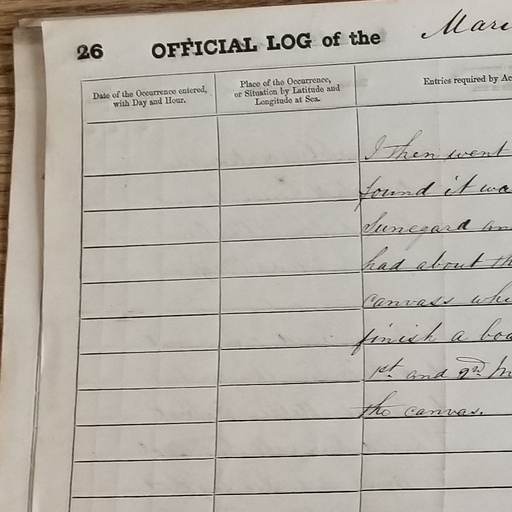 26 OFFICIAL LOG of the Mari
Date of the Occurrence entered, with Day and Hour.
Place of the Occurrence, or Situation by Latitude and Longitude at Sea.
Entries required by Ac
I then went
found it wa
and
had about th
canvass whi
finish a boa
1st and 2nd M
the canvas.